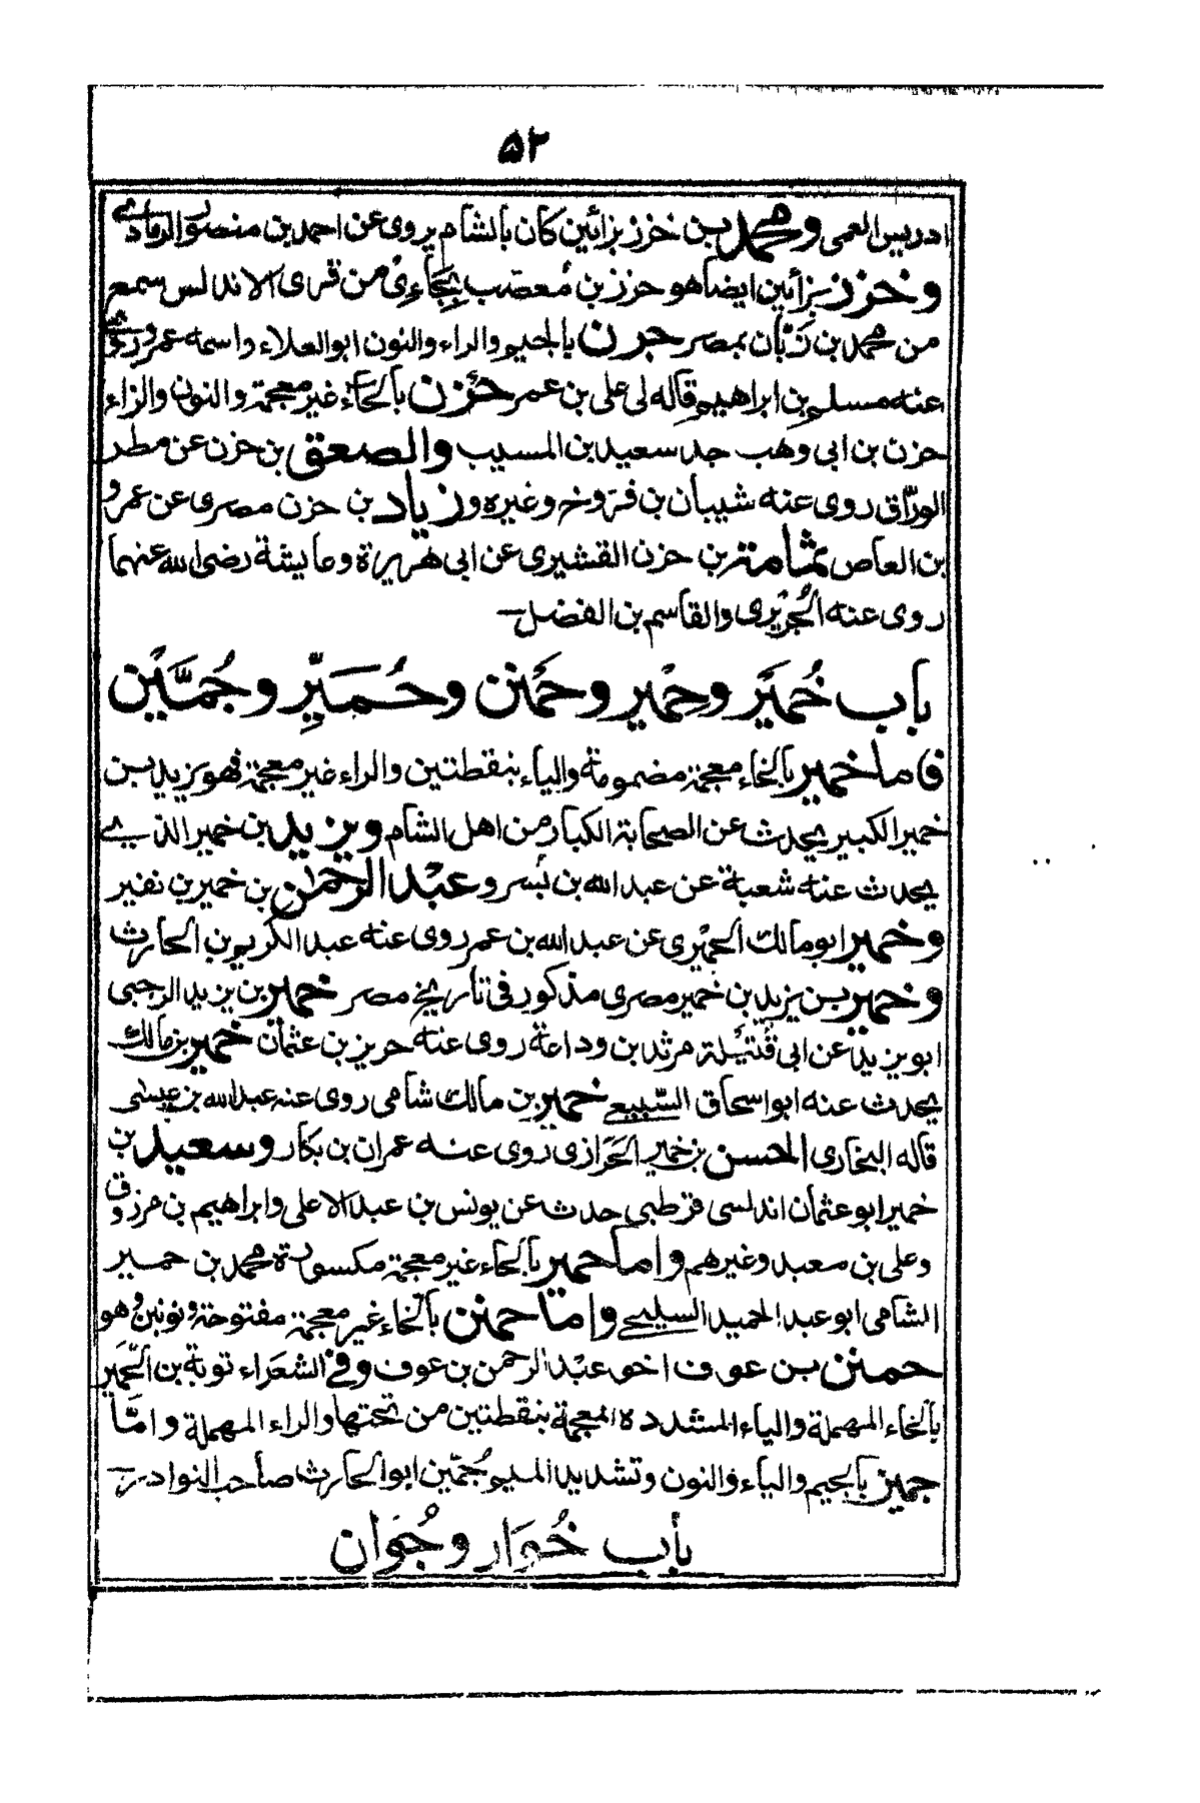 ۵۲
ادريس العمى ومحمد بن خزز بزائين كان بالشام يروى عن احمد بن منصور الرمادي
وخزز بزأين ايضا هو خزز بن مُعصَب بِجَاءِىْ من قرى الاندلس سمع
من محمد بن زَبّان بمصر جرن بالجيم والراء والنون ابو العلاء واسمه عمرو روى
عنه مسلم بن ابراهيم قاله لى على بن عمر حَزن بالحاء غير معجمة والنون والزاء
حزن بن ابى وهب جد سعيد بن المسيب والصعق بن حزن عن مطر
الورّاق روى عنه شيبان بن فروخ وغيره وزياد بن حزن مصرى عن عمرو
بن العاص ثمامة بن حزن القشيرى عن ابى هريرة وعايشة رضى الله عنهما
روى عنه الجُرَيْرى والقاسم بن الفضل
باب خُمَيْر وحِمْير وحَمْنن وحُمَيِّر وجُمَّيْن
فاما خمير بالخاء معجمة مضمومة والياء بنقطتين والراء غير معجمة فهو يزيد بن
خمير الكبير يحدث عن الصحابة الكبار من اهل الشام ويزيد بن خمير الذي
يحدث عنه شعبة عن عبد الله بن بُسر وعبْد الرحمٰن بن خمير بن نفير
وخمير ابو مالك الحِمْيَرى عن عبد الله بن عمر روى عنه عبد الكريم بن الحارث
وخمير بن يزيد بن خمير مصرى مذكور فى تأريخ مصر خمير بن يزيد الرحبى
ابو يزيد عن ابى قُتَيْلة مرثد بن وداعة روى عنه حريز بن عثمان خمير بن مالك
يحدث عنه ابو اسحاق السَّبيعي خمير بن مالك شامى روى عنه عبد الله بن عيسى
قاله البخارى الحسن بن خمير الحَرَازى روى عنه عمران بن بكار وسعيد بن
خمير ابو عثمان اندلسى قرطبى حدث عن يونس بن عبد الاعلى وابراهيم بن مرزوق
وعلى بن معبد وغيرهم واما حمير بالحاء غير معجمة مكسورة محمد بن حمير
الشامى ابو عبد الحميد السليحي وامّا حمنن بالحاء غير معجمة مفتوحة ونونين وهو
حمنن بن عوف اخو عبْد الرحمن بن عوف وفي الشعَراء توبة بن الحُمَيِّر
بالحاء المهملة والياء المشدده المعجمة بنقطتين من تحتها والراء المهملة وامَّا
جمين بالجيم والياء والنون وتشديد الميم جُمّين ابو الحارث صاحب النوادر
باب خُوَار وجُوَان